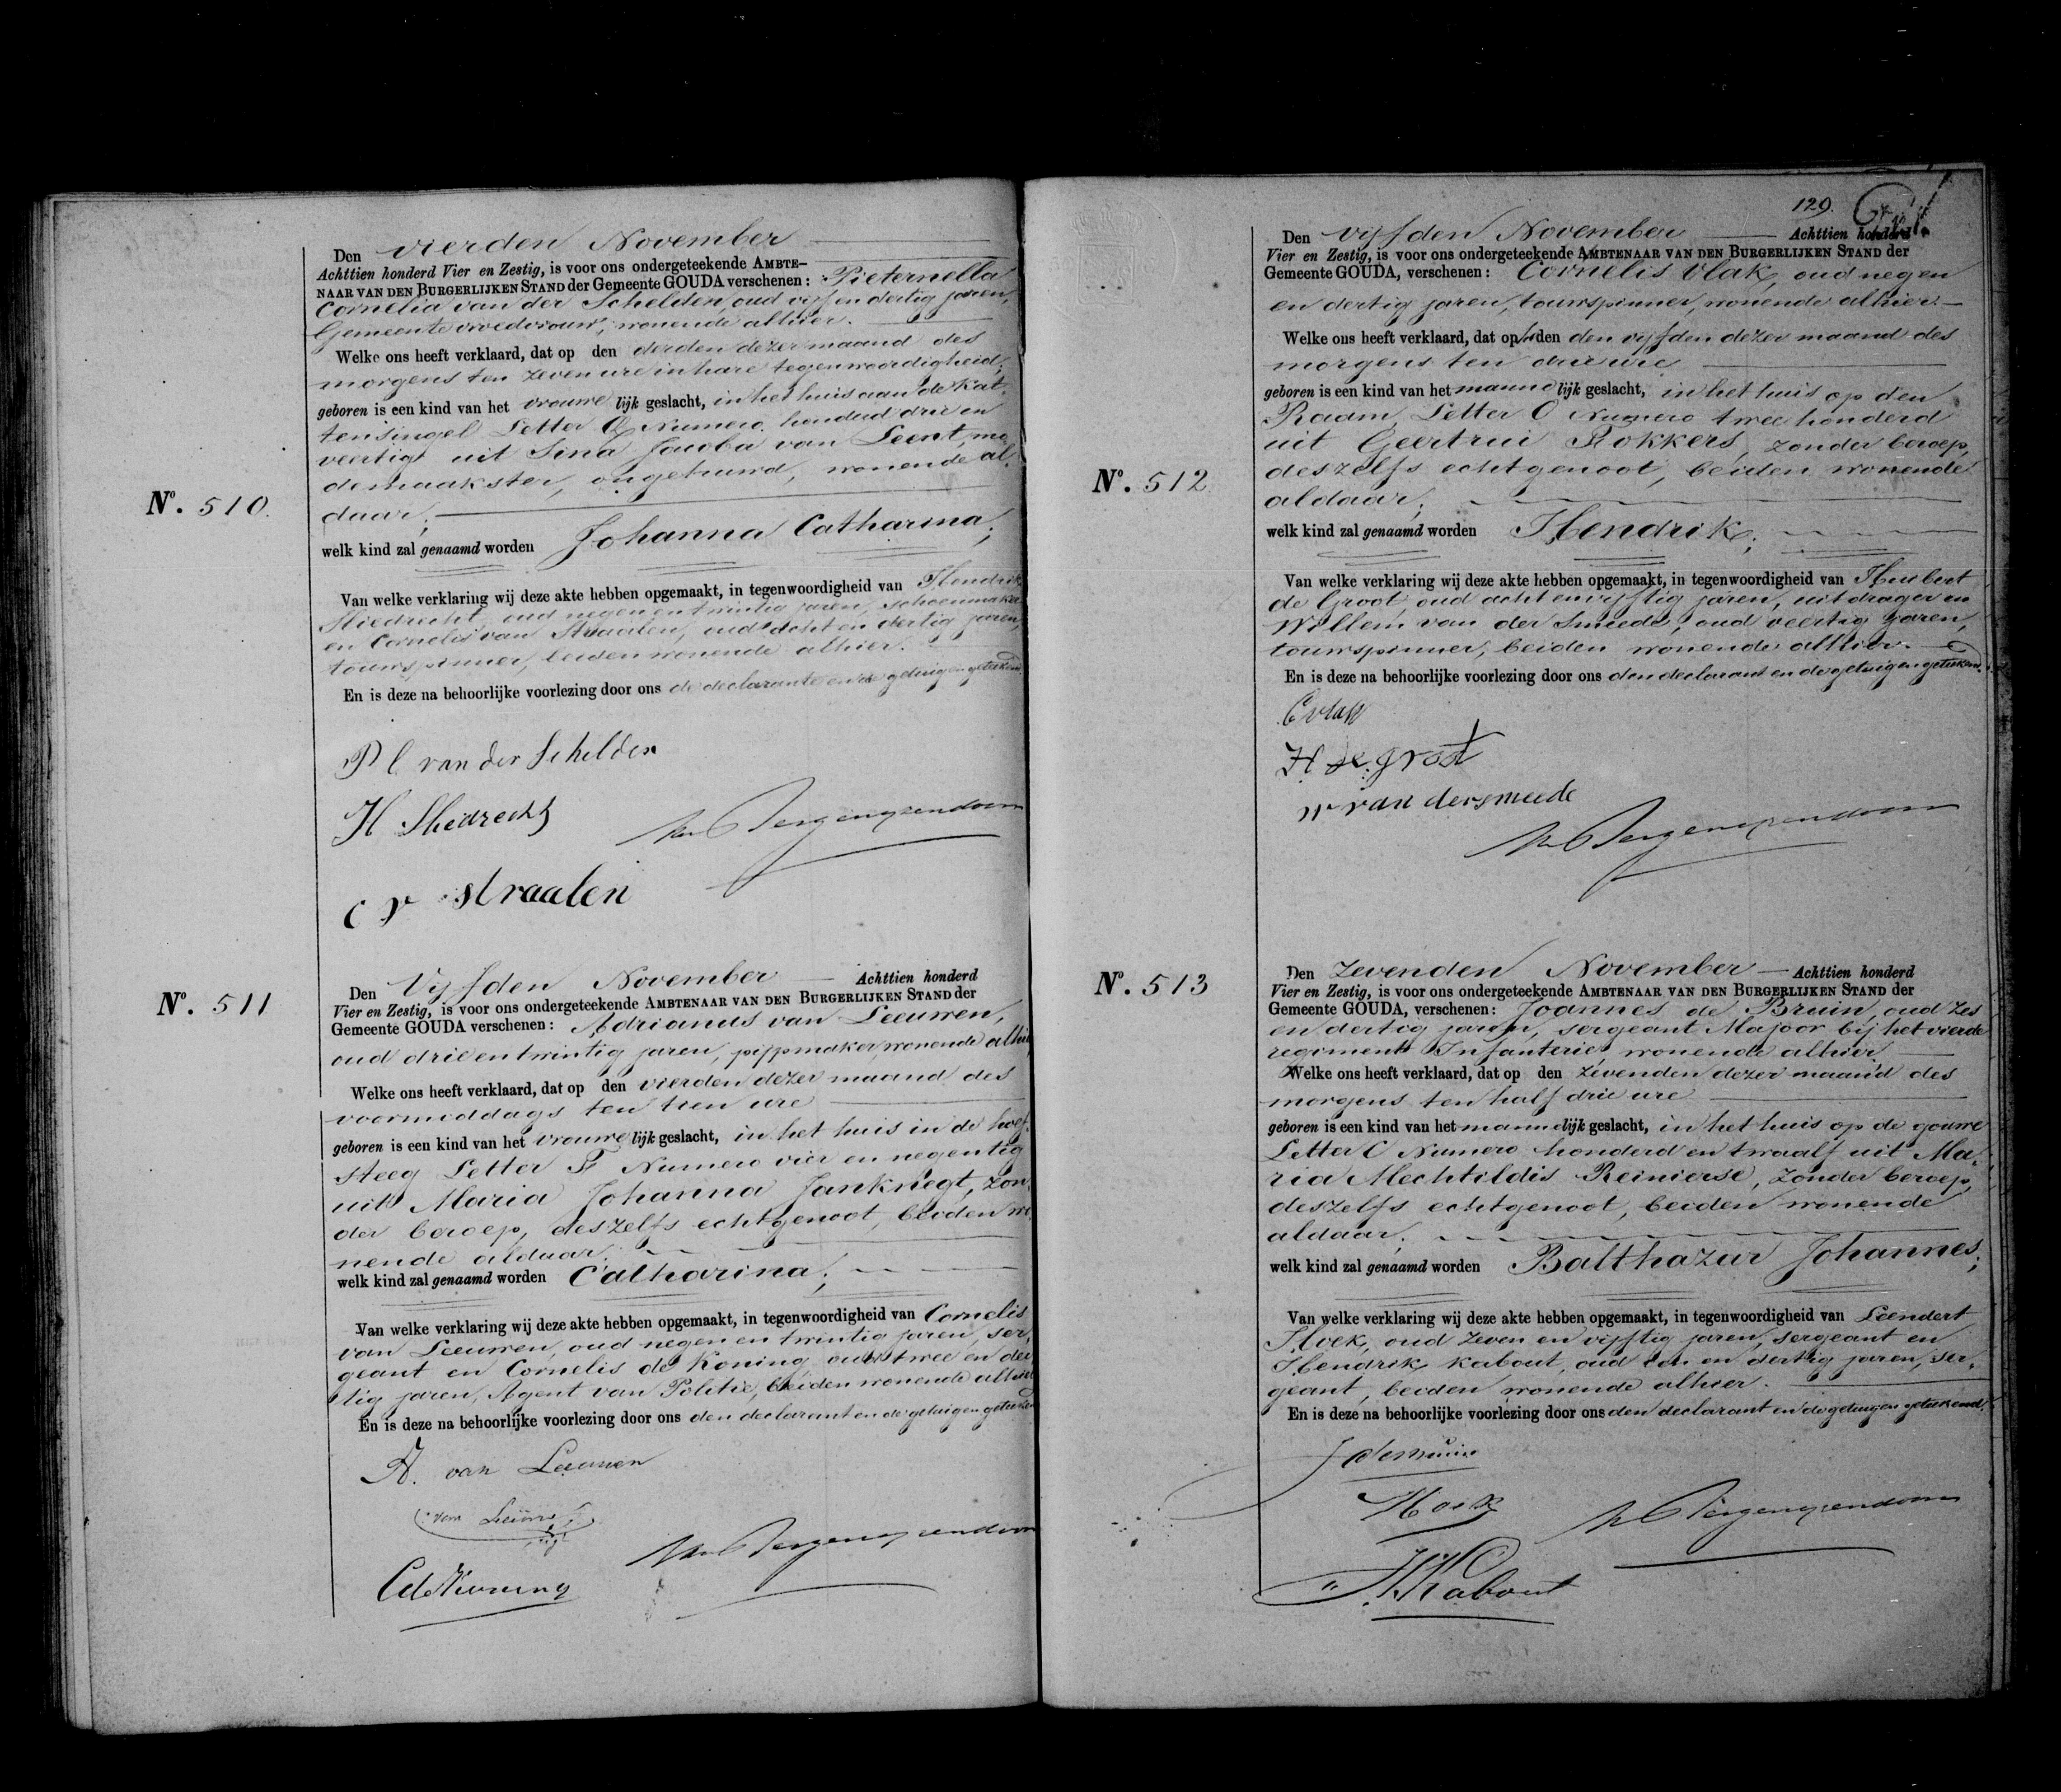 Den vierden November
Achttien honderd Vier en Zestig, is voor ons ondergeteekende AMBTE-
NAAR VAN DEN BURGERLIJKEN STAND der Gemeente GOUDA verschenen: Pieternella
Cornelia van der Schelden, oud vijf en dertig jaren,
Gemeente vroedvrouw, wonende alhier.
Welke ons heeft verklaard, dat op den derden dezer maand des
morgens ten zeven ure in hare tegenwoordigheid,
geboren is een kind van het vrouwelijk geslacht, in het huis aan de Kat-
tensingel Letter Q Numero honderd drie en
veertig uit Sina Jacoba van Leent, mo-
demaakster, ongehuwd, wonende al-
daar;
No. 510.
welk kind zal genaamd worden Johanna Catharina;
Van welke verklaring wij deze akte hebben opgemaakt, in tegenwoordigheid van Hendrik
Sliedrecht, oud negen en twintig jaren, schoenmaker
en Cornelis van Straalen, oud acht en dertig jaren,
touwspinner, beiden wonende alhier.
En is deze na behoorlijke voorlezing door ons de declarante en de getuigen geteekend.
P C van der Schelden
H Sliedrecht
C v straalen
No. 511
Den Vijfden November Achttien honderd
Vier en Zestig, is voor ons ondergeteekende AMBTENAAR VAN DEN BURGERLIJKEN STAND der
Gemeente GOUDA verschenen: Adrianus van Leeuwen,
oud drie en twintig jaren, pijpmaker, wonende alhier
Welke ons heeft verklaard, dat op den vierden dezer maand des
voormiddags ten tien ure
geboren is een kind van het vrouwelijk geslacht, in het huis in de hoef-
steeg Letter F Numero vier en negentig
uit Maria Johanna Janknegt, zon-
der beroep, deszelfs echtgenoot, beiden wo-
nende aldaar;
welk kind zal genaamd worden Catharina;
Van welke verklaring wij deze akte hebben opgemaakt, in tegenwoordigheid van Cornelis
van Leeuwen, oud negen en twintig jaren, ser-
geant en Cornelis de Koning, oud twee en der-
tig jaren, Agent van Politie, beiden wonende alhier
En is deze na behoorlijke voorlezing door ons den declarant en de getuigen geteekend
A. van Leeuwen
van Leeuwen
C de Koning
129.
Den vijfden November Achttien honderd
Vier en Zestig, is voor ons ondergeteekende AMBTENAAR VAN DEN BURGERLIJKEN STAND der
Gemeente GOUDA, verschenen: Cornelis Vlak, oud negen
en dertig jaren, touwspinner, wonende alhier.
Welke ons heeft verklaard, dat op heden den vijfden dezer maand des
morgens ten drie ure
geboren is een kind van het mannelijk geslacht, in het huis op den
Raam, Letter O Numero twee honderd
uit Geertrui Fokkers, zonder beroep,
deszelfs echtgenoot, beiden wonende
aldaar;
No. 512
welk kind zal genaamd worden Hendrik;
Van welke verklaring wij deze akte hebben opgemaakt, in tegenwoordigheid van Huibert
de Groot, oud acht en vijftig jaren, uitdrager en
Willem van der Smeede, oud veertig jaren,
touwspinner, beiden wonende alhier.
En is deze na behoorlijke voorlezing door ons den declarant en de getuigen geteekend.
C vlak
H de groot
w van dersmeede
No. 513
Den zevenden November Achttien honderd
Vier en Zestig, is voor ons ondergeteekende AMBTENAAR VAN DEN BURGERLIJKEN STAND der
Gemeente GOUDA, verschenen: Joannes de Bruin, oud zes
en dertig jaren, sergeant Majoor bij het vierde
regiment Infanterie, wonende alhier.
Welke ons heeft verklaard, dat op den zevenden dezer maand des
morgens ten half drie ure
geboren is een kind van het mannelijk geslacht, in het huis op de gouwe
Letter C Numero honderd en twaalf uit Ma-
ria Mechtildis Reinierse, zonder beroep,
deszelfs echtgenoot, beiden wonende
aldaar;
welk kind zal genaamd worden Balthazar Johannes;
Van welke verklaring wij deze akte hebben opgemaakt, in tegenwoordigheid van Leendert
Hoek, oud zeven en vijftig jaren, sergeant en
Hendrik Kabout, oud een en dertig jaren, ser-
geant, beiden wonende alhier.
En is deze na behoorlijke voorlezing door ons den declarant en de getuigen geteekend.
J de Bruin
Hoek
H Kabout